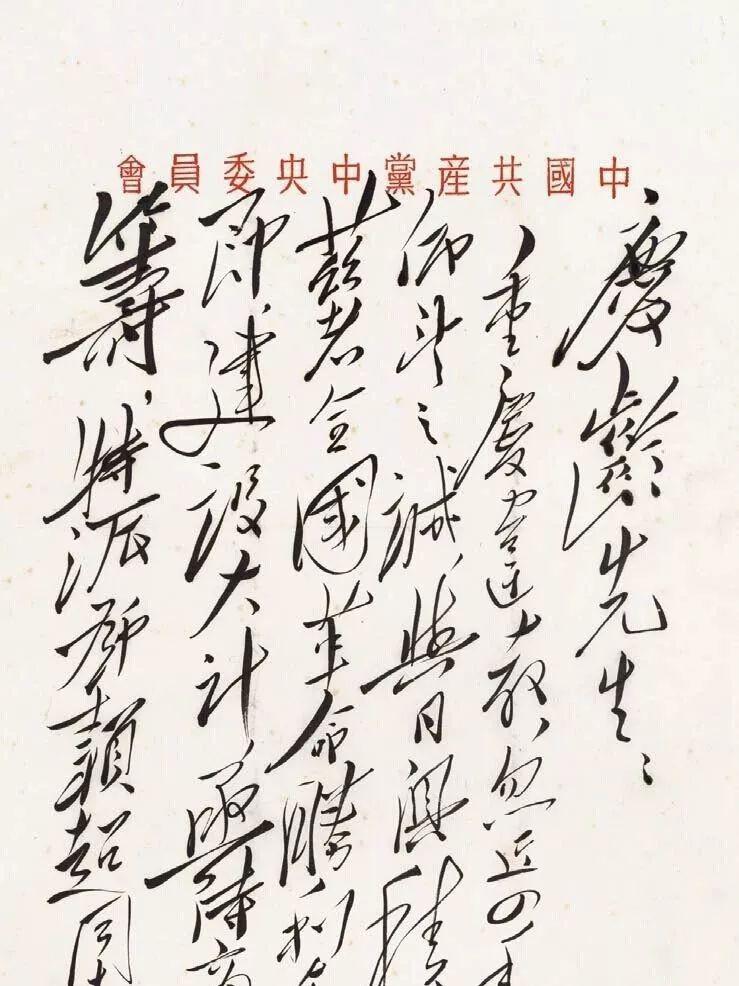 中國共産黨中央委員會
慶齡先生：
重慶違教，忽近四年
仰望之誠，與日俱積
兹者全國革命勝利在
即，建設大計，亟待商
籌，特派鄧穎超同